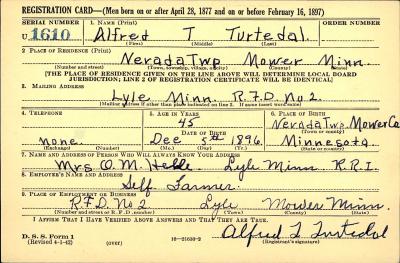 REGISTRATION CARD—(Men born on or after April 28, 1877 and on or before February 16, 1897)
SERIAL NUMBER 1. NAME (Print) ORDER NUMBER
U 1610 Alfred T Turtedal
(First) (Middle) (Last)
2. PLACE OF RESIDENCE (Print)
Nevada Twp Mower Minn.
(Number and street) (Town, township, village, or city) (County) (State)
[THE PLACE OF RESIDENCE GIVEN ON THE LINE ABOVE WILL DETERMINE LOCAL BOARD
JURISDICTION; LINE 2 OF REGISTRATION CERTIFICATE WILL BE IDENTICAL]
3. MAILING ADDRESS
Lyle Minn. R.F.D. No 2.
[Mailing address if other than place indicated on line 2. If same insert word same]
4. TELEPHONE 5. AGE IN YEARS 6. PLACE OF BIRTH
45 Nevada Twp Mower Co
DATE OF BIRTH (Town or county)
none. Dec 5th 1896. Minnesota.
(Exchange) (Number) (Mo.) (Day) (Yr.) (State or country)
7. NAME AND ADDRESS OF PERSON WHO WILL ALWAYS KNOW YOUR ADDRESS
Mrs O. M. Lyle Minn R.R.I.
8. EMPLOYER'S NAME AND ADDRESS
Self Farmer
9. PLACE OF EMPLOYMENT OR BUSINESS
R.F.D. No 2 Lyle Mower Minn.
(Number and street or R. F. D. number) (Town) (County) (State)
I AFFIRM THAT I HAVE VERIFIED ABOVE ANSWERS AND THAT THEY ARE TRUE.
D. S. S. Form 1 Alfred T Turtedal
(Revised 4-1-42) (over) 16—21630-2 (Registrant's signature)